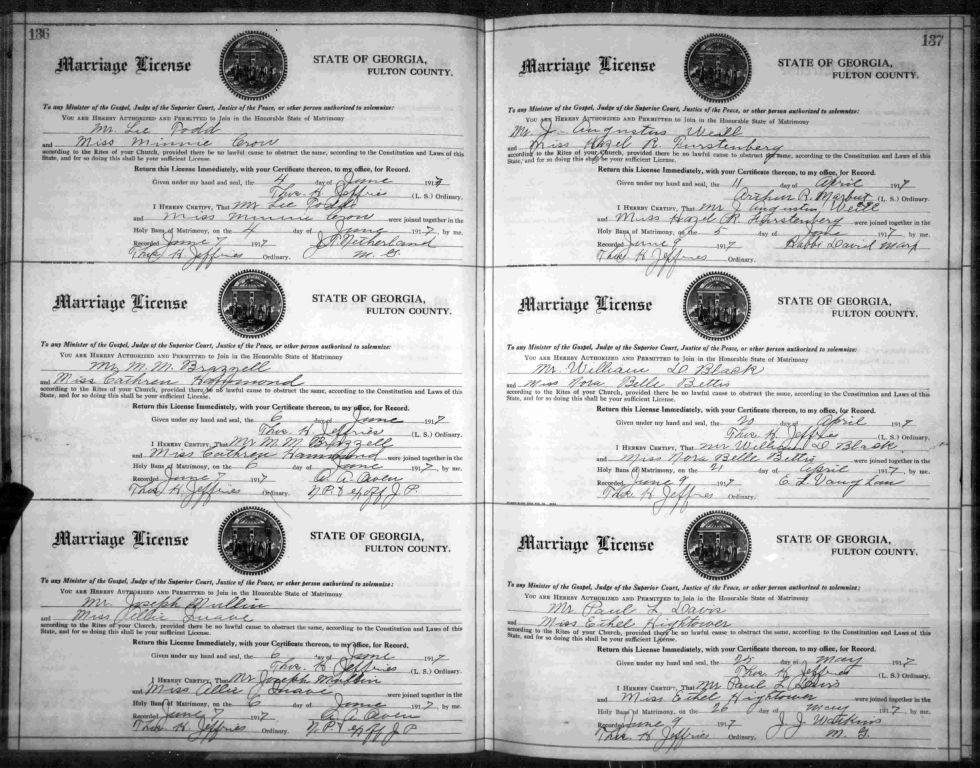 136
Marriage License
STATE OF GEORGIA,
FULTON COUNTY.
To any Minister of the Gospel, Judge of the Superior Court, Justice of the Peace, or other person authorized to solemnize:
YOU ARE HEREBY AUTHORIZED AND PERMITTED to Join in the Honorable State of Matrimony
Mr. Lee Todd
and Miss Minnie Crow
according to the Rites of your Church, provided there be no lawful cause to obstruct the same, according to the Constitution and Laws of this
State, and for so doing this shall be your sufficient License.
Return this License Immediately, with your Certificate thereon, to my office, for Record.
Given under my hand and seal, the 4 day of June 1917
Thos. H. Jeffries (L. S.) Ordinary.
I HEREBY CERTIFY, That Mr Lee Todd
and Miss Minnie Crow were joined together in the
Holy Bans of Matrimony, on the 4 day of June 1917, by me.
Recorded June 7 1917 J. P. Netherland
Thos H Jeffries Ordinary. M. G.
Marriage License
STATE OF GEORGIA,
FULTON COUNTY.
To any Minister of the Gospel, Judge of the Superior Court, Justice of the Peace, or other person authorized to solemnize:
YOU ARE HEREBY AUTHORIZED AND PERMITTED to Join in the Honorable State of Matrimony
Mr M. M. Brazzell
and Miss Cathren Hammond
according to the Rites of your Church, provided there be no lawful cause to obstruct the same, according to the Constitution and Laws of this
State, and for so doing this shall be your sufficient License.
Return this License Immediately, with your Certificate thereon, to my office, for Record.
Given under my hand and seal, the 6 day of June 1917
Thos. H. Jeffries (L. S.) Ordinary.
I HEREBY CERTIFY, That Mr M. M. Brazzell
and Miss Cathren Hammond were joined together in the
Holy Bans of Matrimony, on the 6 day of June 1917, by me.
Recorded June 7 1917 Owen
Thos. H Jeffries Ordinary. N. P. & Ex off J. P.
Marriage License
STATE OF GEORGIA,
FULTON COUNTY.
To any Minister of the Gospel, Judge of the Superior Court, Justice of the Peace, or other person authorized to solemnize:
YOU ARE HEREBY AUTHORIZED AND PERMITTED to Join in the Honorable State of Matrimony
Mr. Joseph Mullin
and Miss Allie
according to the Rites of your Church, provided there be no lawful cause to obstruct the same, according to the Constitution and Laws of this
State, and for so doing this shall be your sufficient License.
Return this License Immediately, with your Certificate thereon, to my office, for Record.
Given under my hand and seal, the 6 day of June 1917
Thos. H. Jeffries (L. S.) Ordinary.
I HEREBY CERTIFY, That Mr Joseph Mullin
and Miss Allie were joined together in the
Holy Bans of Matrimony, on the 6 day of June 1917, by me.
Recorded June 7 1917 Owen
Thos H Jeffries Ordinary. N. P. & Ex off J. P.
137
Marriage License
STATE OF GEORGIA,
FULTON COUNTY.
To any Minister of the Gospel, Judge of the Superior Court, Justice of the Peace, or other person authorized to solemnize:
YOU ARE HEREBY AUTHORIZED AND PERMITTED to Join in the Honorable State of Matrimony
Mr. J. Augustus Weill
and Miss Hazel R Furstenberg
according to the Rites of your Church, provided there be no lawful cause to obstruct the same, according to the Constitution and Laws of this
State, and for so doing this shall be your sufficient License.
Return this License Immediately, with your Certificate thereon, to my office, for Record.
Given under my hand and seal, the 11 day of April 1917
Arthur R. Marbut (L. S.) Ordinary.
I HEREBY CERTIFY, That Mr J Augustus Weill
and Miss Hazel R Furstenberg were joined together in the
Holy Bans of Matrimony, on the 5 day of June 1917, by me.
Recorded June 9 1917 Rabbi David Marx
Thos H Jeffries Ordinary.
Marriage License
STATE OF GEORGIA,
FULTON COUNTY.
To any Minister of the Gospel, Judge of the Superior Court, Justice of the Peace, or other person authorized to solemnize:
YOU ARE HEREBY AUTHORIZED AND PERMITTED to Join in the Honorable State of Matrimony
Mr. William D Black
and Miss Nora Belle Bettis
according to the Rites of your Church, provided there be no lawful cause to obstruct the same, according to the Constitution and Laws of this
State, and for so doing this shall be your sufficient License.
Return this License Immediately, with your Certificate thereon, to my office, for Record.
Given under my hand and seal, the 20 day of April 1917
Thos H Jeffries (L. S.) Ordinary.
I HEREBY CERTIFY, That Mr William D Black
and Miss Nora Belle Bettis were joined together in the
Holy Bans of Matrimony, on the 21 day of April 1917, by me.
Recorded June 9 1917 C. L. Vaughan
Thos H Jeffries Ordinary.
Marriage License
STATE OF GEORGIA,
FULTON COUNTY.
To any Minister of the Gospel, Judge of the Superior Court, Justice of the Peace, or other person authorized to solemnize:
YOU ARE HEREBY AUTHORIZED AND PERMITTED to Join in the Honorable State of Matrimony
Mr Paul L Davis
and Miss Ethel Hightower
according to the Rites of your Church, provided there be no lawful cause to obstruct the same, according to the Constitution and Laws of this
State, and for so doing this shall be your sufficient License.
Return this License Immediately, with your Certificate thereon, to my office, for Record.
Given under my hand and seal, the 25 day of May 1917
Thos H Jeffries (L. S.) Ordinary.
I HEREBY CERTIFY, That Mr Paul L Davis
and Miss Ethel Hightower were joined together in the
Holy Bans of Matrimony, on the 26 day of May 1917, by me.
Recorded June 9 1917 J. J Watkins
Thos. H Jeffries Ordinary. M. G.